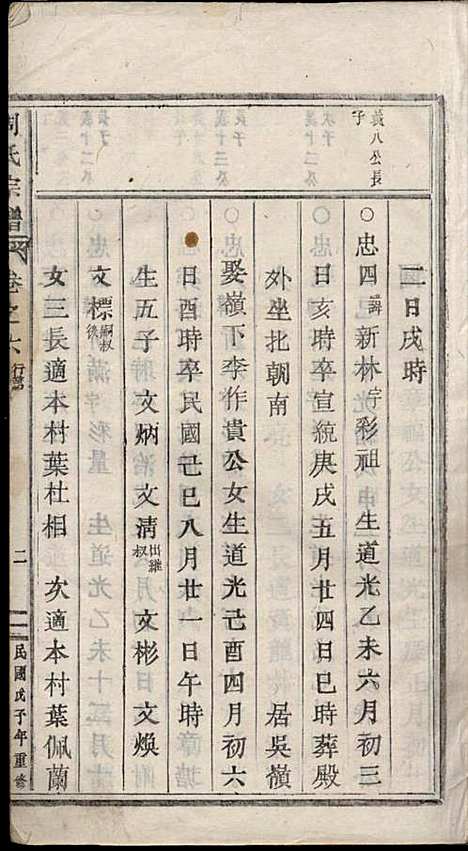 義八公長
子
二日戌時
○忠四諱新林字彩祖 生道光乙未六月初三
日亥時卒宣統庚戌五月廿四日巳時葬殿
外坐北朝南 居吳嶺
○娶嶺下李作貴公女生道光己酉四月初六
日酉時卒民國己巳八月廿一日午時
生五子 文炳 文清出繼叔 文彬 文煥
文標嗣叔後
女三長適本村葉杜相 次適本村葉佩蘭
周氏宗譜 卷之六 行第 二 民國戊子年重修